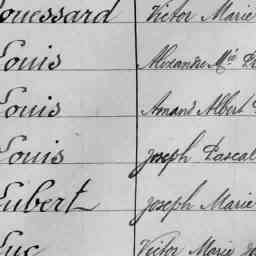 ouessard Victor Marie
Louis Alexandre Mie
Louis Amand Albert
Louis Joseph Pascal
Lubert Joseph Marie
Luc Victor Marie